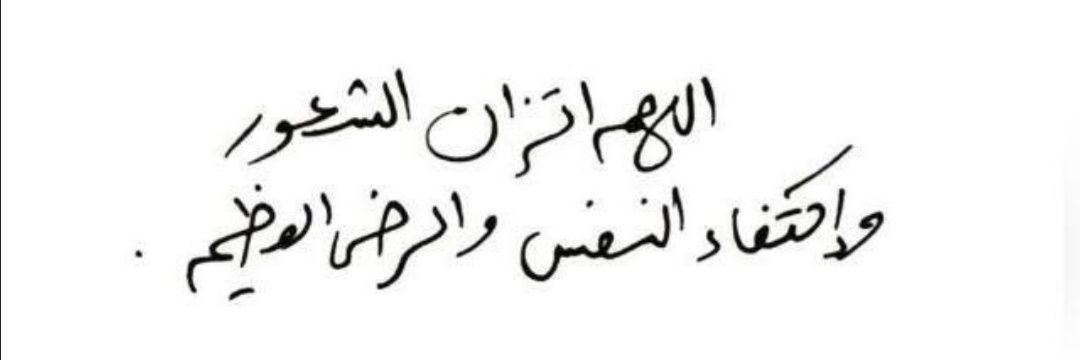 اللهم اتزان الشعور
وإكتفاء النفس والرضى العظيم .